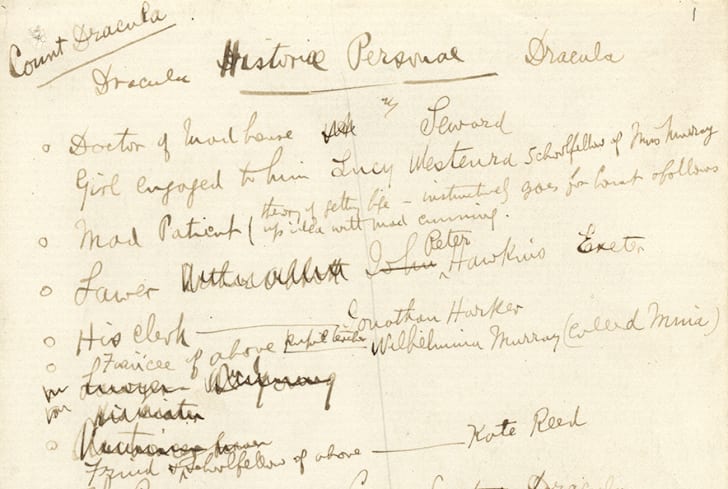 1
Count Dracula
Dracula Historiae Personae Dracula
Doctor of Mad house Seward
Girl engaged to him Lucy Westenra schoolfellow of Miss Murray
Mad Patient (theory of getting life – instinctively goes for Count & follows
up idea with mad cunning.
Lawyer John Peter Hawkins Exeter
His clerk — Jonathan Harker
Fiancée of above pupil teacher Wilhelmina Murray (called Mina)
Lawyer
Friend & schoolfellow of above — Kate Reed
Dracula